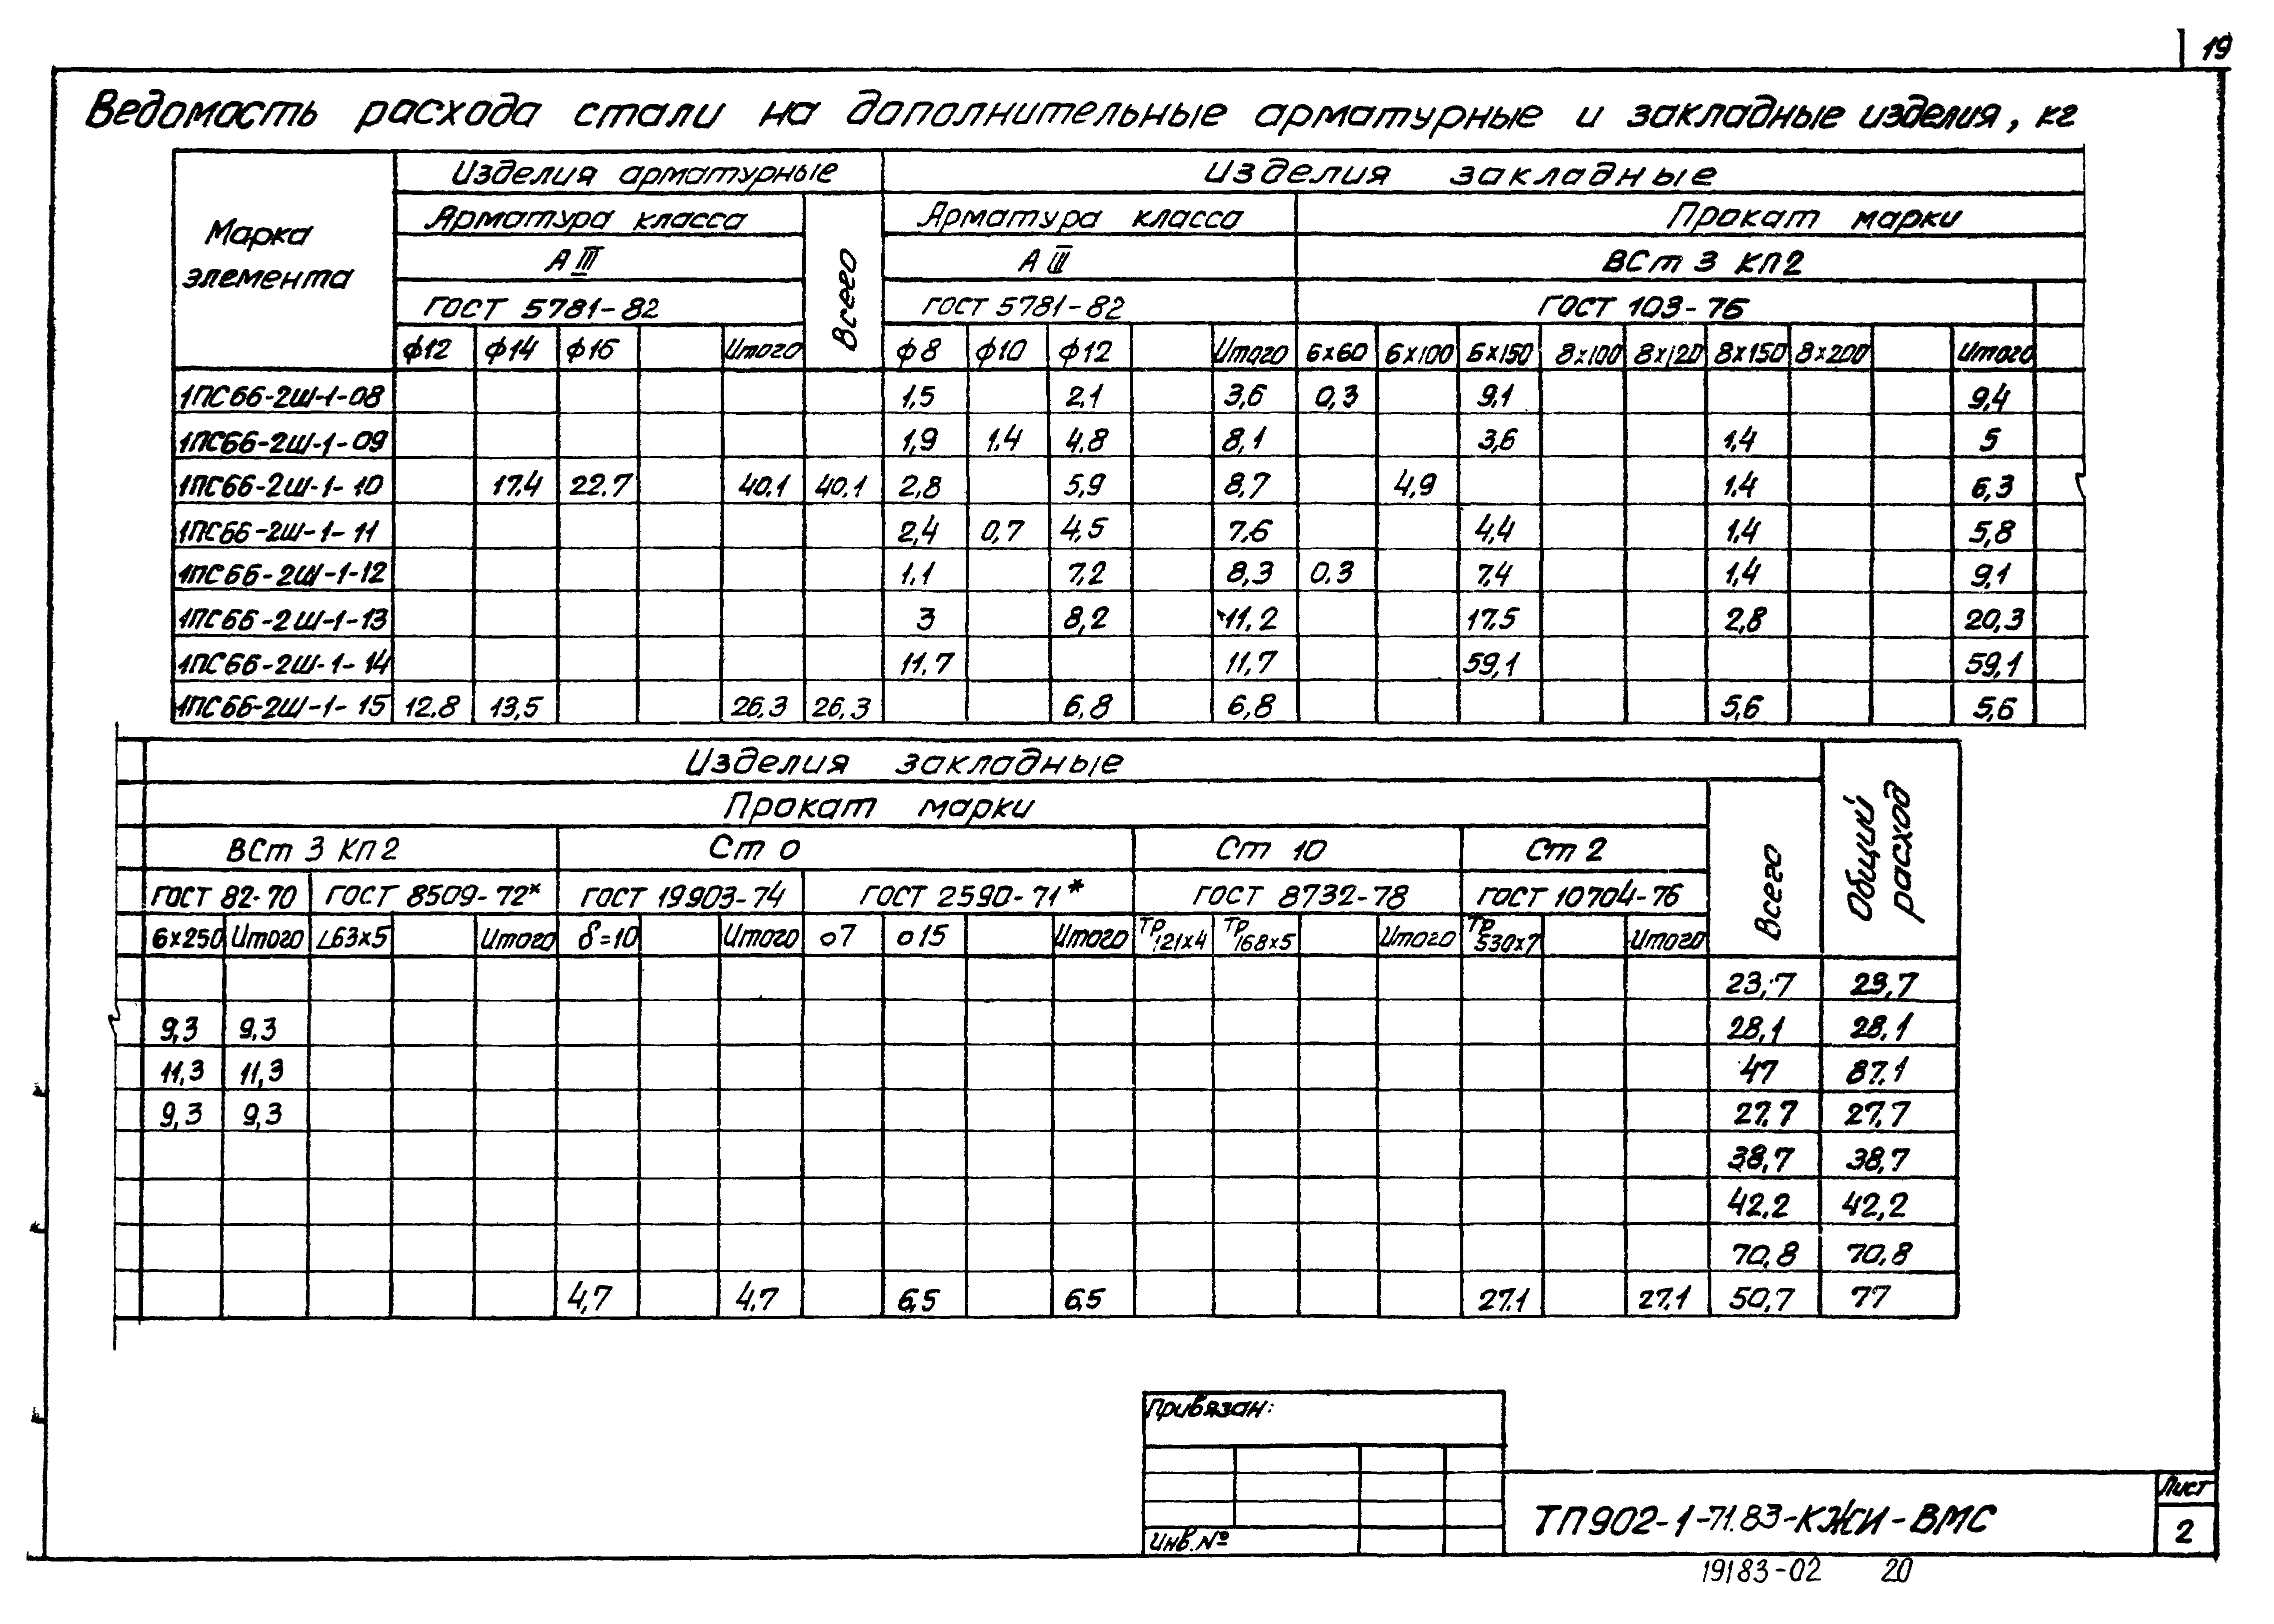 19
Ведомость расхода стали на дополнительные арматурные и закладные изделия, кг
Марка элемента
Изделия арматурные
Изделия закладные
Арматура класса
Всего
Арматура класса
Прокат марки
А III
А III
ВСт 3 КП2
ГОСТ 5781-82
ГОСТ 5781-82
ГОСТ 103-76
ф12 ф14 ф16 Итого ф8 ф10 ф12 Итого 6х60 6х100 6х150 8х100 8х120 8х150 8х200 Итого
1ПС66-2Ш-1-08 1,5 2,1 3,6 0,3 9,1 9,4
1ПС66-2Ш-1-09 1,9 1,4 4,8 8,1 3,6 1,4 5
1ПС66-2Ш-1-10 17,4 22,7 40,1 40,1 2,8 5,9 8,7 4,9 1,4 6,3
1ПС66-2Ш-1-11 2,4 0,7 4,5 7,6 4,4 1,4 5,8
1ПС66-2Ш-1-12 1,1 7,2 8,3 0,3 7,4 1,4 9,1
1ПС66-2Ш-1-13 3 8,2 11,2 17,5 2,8 20,3
1ПС66-2Ш-1-14 11,7 11,7 59,1 59,1
1ПС66-2Ш-1-15 12,8 13,5 26,3 26,3 6,8 6,8 5,6 5,6
Изделия закладные
Общий расход
Прокат марки
Всего
ВСт 3 КП2 Ст 0 Ст 10 Ст 2
ГОСТ 82-70 ГОСТ 8509-72* ГОСТ 19903-74 ГОСТ 2590-71* ГОСТ 8732-78 ГОСТ 10704-76
6х250 Итого ∠63х5 Итого δ=10 Итого о7 о15 Итого Тр 121х4 Тр 168х5 Итого Тр 530х7 Итого
23,7 23,7
9,3 9,3 28,1 28,1
11,3 11,3 47 87,1
9,3 9,3 27,7 27,7
38,7 38,7
42,2 42,2
70,8 70,8
4,7 4,7 6,5 6,5 27,1 27,1 50,7 77
Привязан:
Инв.№
ТП902-1-71.83-КЖИ-ВМС
Лист
2
19183-02 20